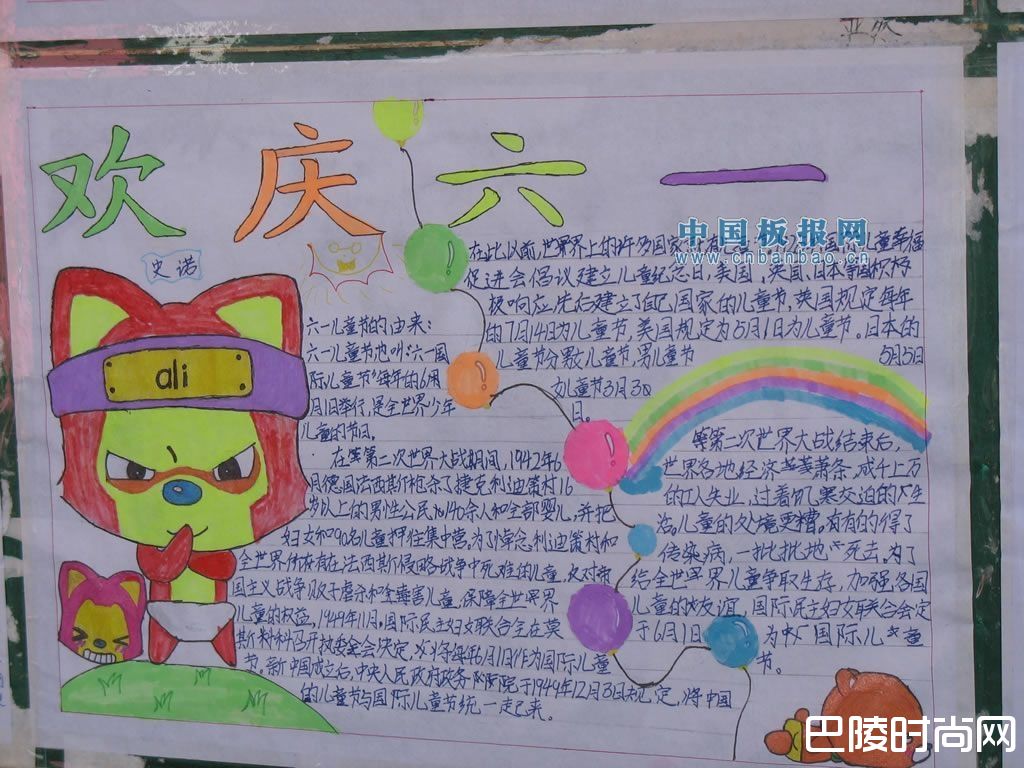 亚版
欢庆六一
史诺
ali
六一儿童节的由来：
六一儿童节也叫：六一国
际儿童节每年的6月
月1日举行，是全世界少年
儿童的节日。
在第二次世界大战期间，1942年6
月德国法西斯枪杀了捷克利迪策村16
岁以上的男性公民140余人和全部婴儿，并把
妇女和90名儿童押往集中营。为了悼念利迪策村和
全世界所有在法西斯侵略战争中死难的儿童，反对帝
国主义战争贩子虐杀和毒害儿童，保障全世界
儿童的权益，1949年11月，国际民主妇女联合会在莫
斯科召开执委会会决定，以将每年6月1日作为国际儿童
节。新中国成立后，中央人民政府政务院于1949年12月3日规定，将中国
的儿童节与国际儿童节统一起来。
在此以前，世界上的许多国家都有 儿童幸福
促进会倡议建立儿童纪念日，美国，英国、日本等国积极
极响应，先后建立了自己国家的儿童节，英国规定每年
的7月14日为儿童节，美国规定为5月1日为儿童节。日本的
儿童节分男女儿童节，男儿童节 5月5日
女儿童节3月3日
日。
第二次世界大战结束后，
世界各地经济萧条，成千上万
的工人失业，过着饥寒交迫的生
活。儿童的处境更糟。有的得了
传染病，一批批地死去。为了
给全世界儿童争取生存，加强各国
儿童的友谊，国际民主妇女联合会定
于6月1日 为 国际儿童
节。
中国板报网
www.cnbanbao.cn
巴陵时尚网